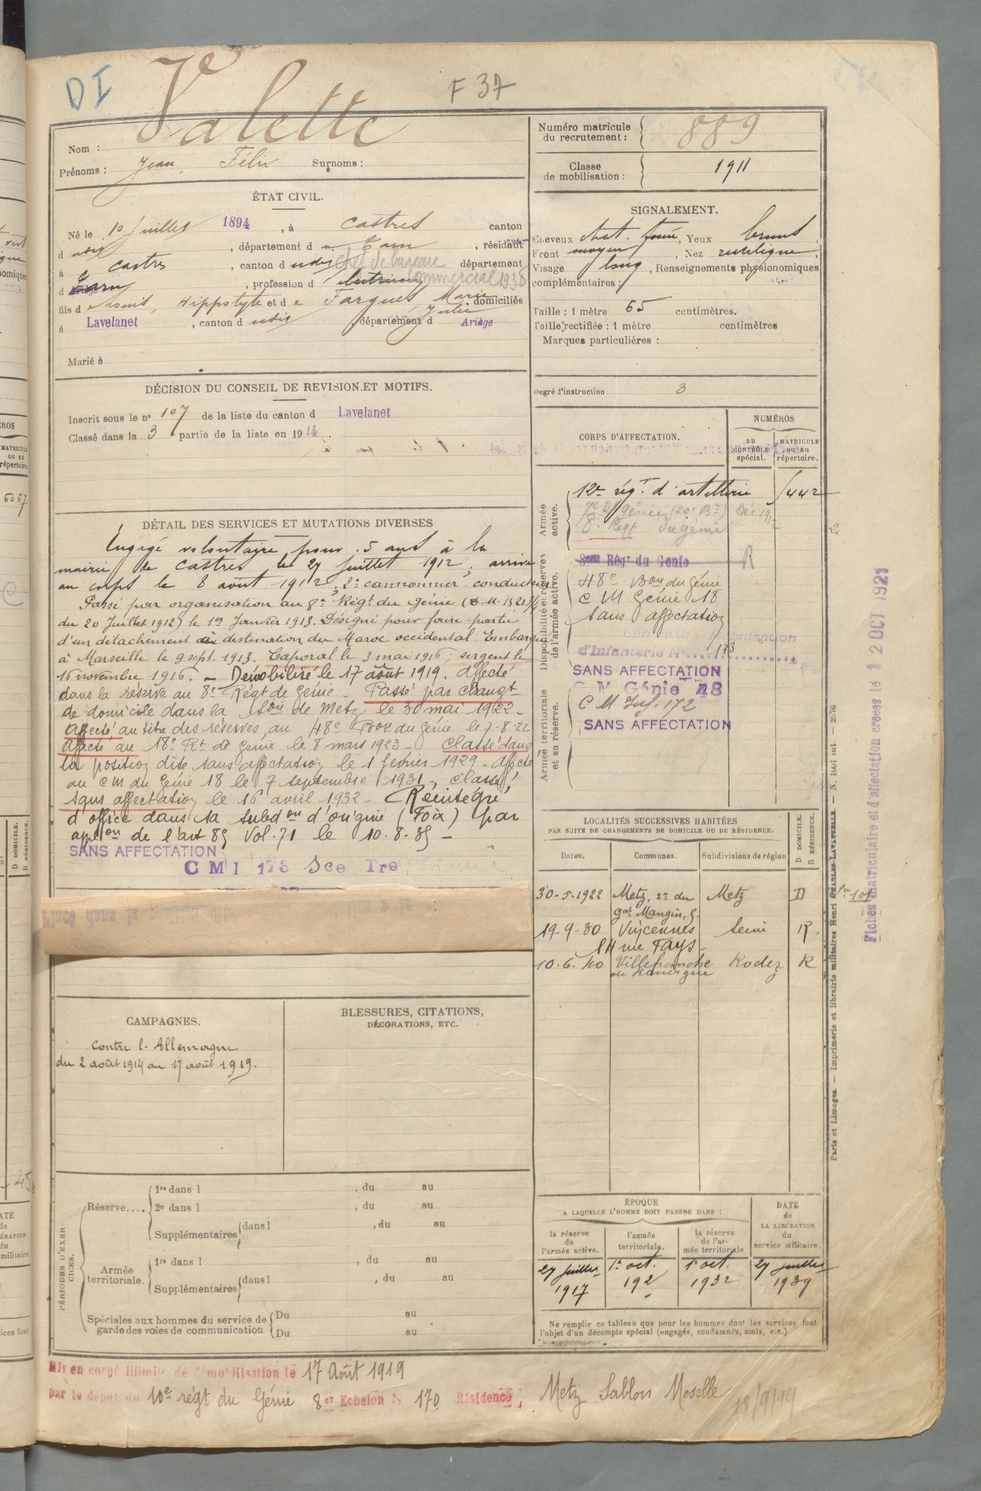 DI
F 37
Nom : Valette
Prénoms : Jean Félix Surnoms :
Numéro matricule du recrutement : 889
Classe de mobilisation : 1911
ÉTAT CIVIL.
Né le 10 juillet 1894, à Castres canton
d udit, département d u Tarn, résidant
à Castres, canton d udit Chef de bureau département
d u Tarn, profession d commercial 1938
fils d Hippolyte et de Fargues Marie Julie domiciliés
à Lavelanet, canton d udit, département d Ariège
Marié à
SIGNALEMENT.
Cheveux chat. foncé, Yeux bruns,
Front moyen, Nez rectiligne,
Visage long, Renseignements physionomiques
complémentaires :
Taille : 1 mètre 65 centimètres.
Taille rectifiée : 1 mètre centimètres
Marques particulières :
Degré d'instruction : 3
DÉCISION DU CONSEIL DE REVISION ET MOTIFS.
Inscrit sous le n° 107 de la liste du canton d Lavelanet
Classé dans la 3 partie de la liste en 1914.
DÉTAIL DES SERVICES ET MUTATIONS DIVERSES
Engagé volontaire pour 5 ans à la
mairie de Castres le 27 juillet 1912, arrivé
au corps le 8 août 1912, 2e cannonnier conducteur
Passé par organisation au 8e Régt du Génie
du 20 Juillet 1912) le 1er Janvier 1913. Désigné pour faire partie
d'un détachement à destination du Maroc occidental Embarqué
à Marseille le 9 sept. 1913. Caporal le 3 mai 1916; sergent le
16 novembre 1916. – Démobilisé le 17 août 1919. Affecté
dans la réserve au 8e Régt de Génie – Passé par changt
de domicile dans la Son de Metz le 30 mai 1922 –
Affecté au titre des réserves au 48e Bon du Génie le 7-8-22
Affecté au 18e Rt de Génie le 8 mars 1923 – Classé dans
la position dite sans affectation le 1 février 1929 – Affecté
au CM du Génie 18 le 7 septembre 1931, Classé
sans affectation le 16 avril 1932 – Réintégré
d'office dans la subdon d'origine (Foix) par
aplon de l'art 85 Vol. 71 le 10-8-35 –
SANS AFFECTATION
CMI 173 Sce Tre
CORPS D'AFFECTATION.
NUMÉROS
AU CONTRÔLE spécial.
MATRICULE ou au répertoire.
Armée active.
12e régt d'artillerie 1442
8e Regt du génie
Disponibilité et réserve de l'armée active.
8eme Régt du Génie R
48e Bon du Génie
C M Génie 18
Sans affectation
d'Infanterie N° 173
SANS AFFECTATION
Armée territoriale et sa réserve.
C M Génie 48
C M Inf. 172
SANS AFFECTATION
LOCALITÉS SUCCESSIVES HABITÉES
PAR SUITE DE CHANGEMENTS DE DOMICILE OU DE RÉSIDENCE.
Dates. Communes. Subdivisions de région D DOMICILE. R RÉSIDENCE.
30-5-1922 Metz, rue du Gal Mangin, 5 Metz D
19-9-30 Vincennes Seine R.
10.6.40 Villefranche de Rouergue Rodez R
CAMPAGNES.
Contre l'Allemagne
du 2 août 1914 au 17 août 1919.
BLESSURES, CITATIONS,
DÉCORATIONS, ETC.
PÉRIODES D'EXERCICES.
Réserve....
1re dans l , du au
2e dans l , du au
Supplémentaires dans l , du au
Armée territoriale.
1re dans l , du au
Supplémentaires dans l , du au
Spéciales aux hommes du service de garde des voies de communication
Du au
Du au
ÉPOQUE
A LAQUELLE L'HOMME DOIT PASSER DANS :
la réserve de l'armée active.
l'armée territoriale.
la réserve de l'armée territoriale
DATE de LA LIBÉRATION du service militaire.
27 juillet 1917
1er oct. 192
1er oct. 1932
27 juillet 1939
Ne remplir ce tableau que pour les hommes dont les services font
l'objet d'un décompte spécial (engagés, condamnés, omis, etc.)
Mis en congé illimité de démobilisation le 17 Août 1919
par le dépôt du 10e régt du Génie 8er Echelon N 170 Résidence, Metz Sablon Moselle
18/9/19
Fiches matriculaire et d'affectation créées le 12 OCT 1921
Paris et Limoges. — Imprimerie et librairie militaires Henri CHARLES-LAVAUZELLE.